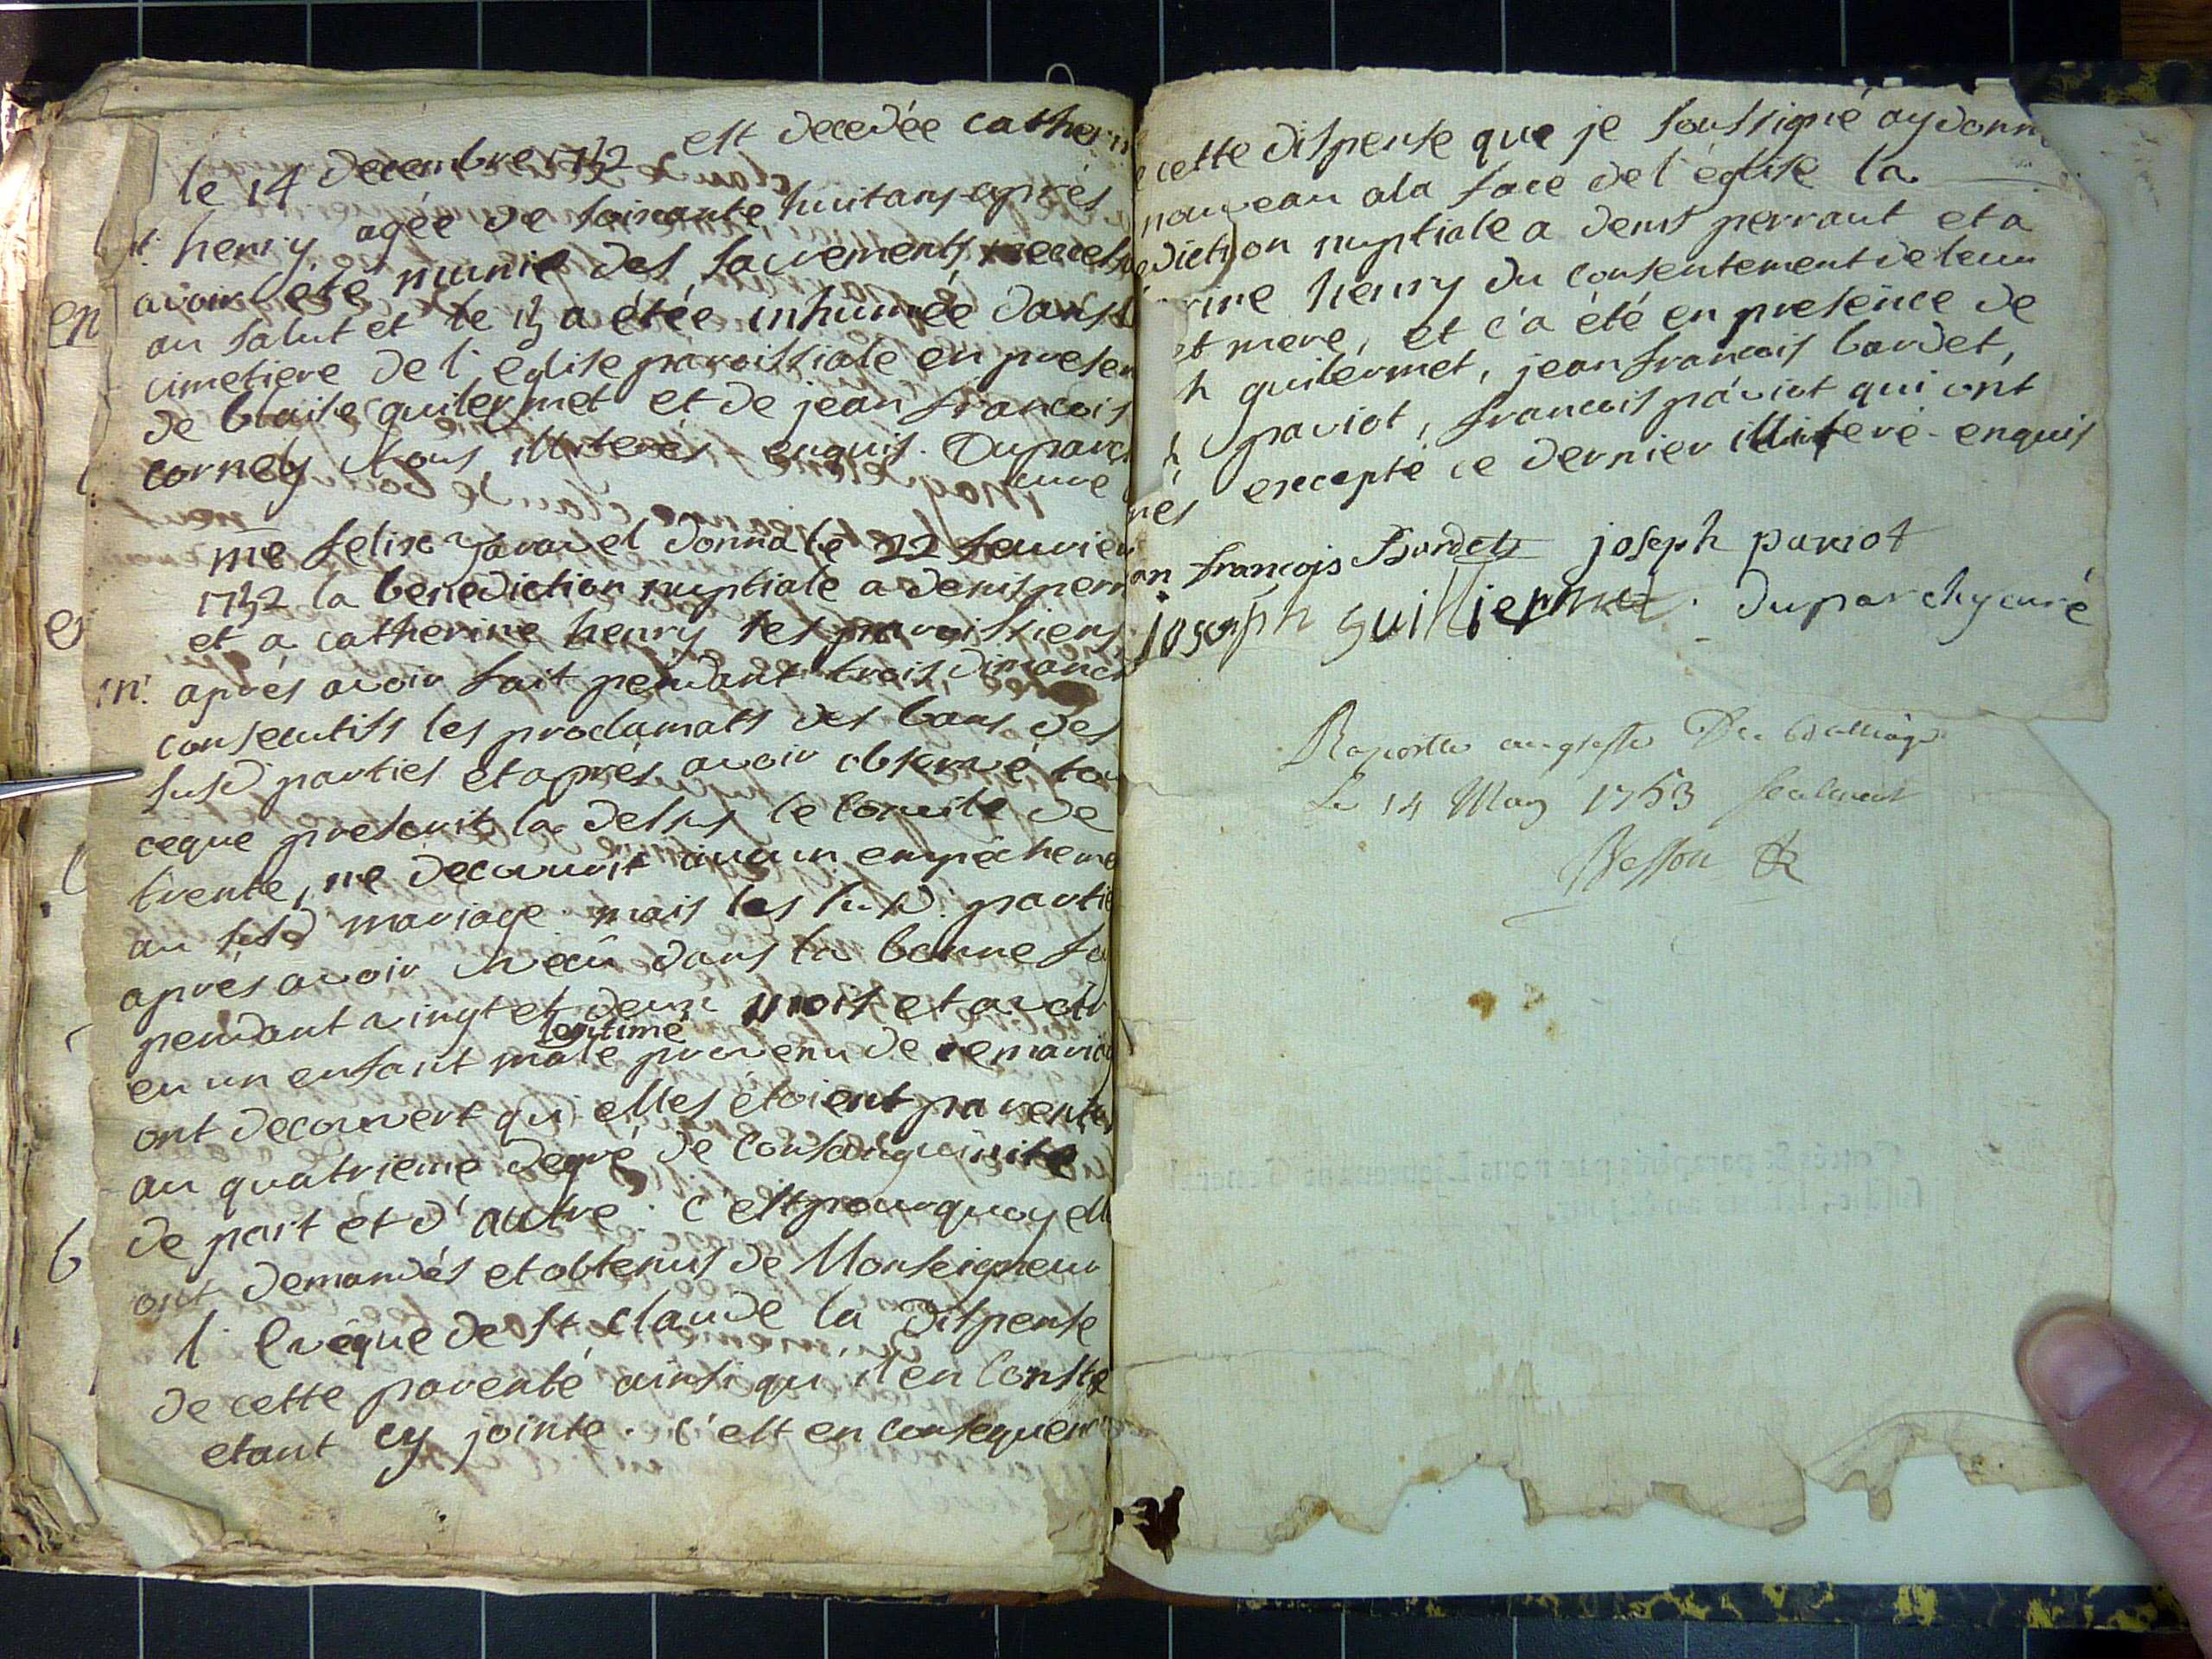 le 14 decembre 1752 est decedée catherin
henry agée de soixante huit ans après
avoir été munie des sacrements necess
au salut et le 15 a étée inhumée dans l
cimetiere de l'eglise paroissiale en presen
de blaise guilermet et de jean françois
cornely tous illiterés enquis. Duparchy
curé
me felix Javavel donna le 22 feuvrier
1752 la benediction nuptiale a denis perr
et a catherine henry ses paroissiens
après avoir fait pendant trois dimanch
consecutifs les proclamats des bans des
susd parties et après avoir observé tou
ceque prescrit la dessus le concile de
trente, ne decouvrit aucun empêcheme
au susd mariage. mais les susd. partie
après avoir vecû dans la bonne fo
pendant vingt et deux mois et avoir
legitime
eu un enfant male provenu de ce maria
ont decouvert qu'elles étoient parentes
au quatrieme degré de consanguinité
de part et d'autre. c'est pourquoy ell
ont demandés et obtenus de Monseigneur
l'Evêque de st claude la dispense
de cette parenté ainsi qu'il en conste
etant cy jointe. c'est en consequen
cette dispense que je soussigné ay donn
nouveau ala face de l'église la
diction nuptiale a denis perraut et a
rine henry du consentement de leur
et mere, et c'a été en presence de
h guilermet, jean francois bardet,
h paviot, francois paviot qui ont
nés excepté ce dernier illiteré enquis
an françois Bardet joseph paviot
joseph guilliermet. duparchy curé
Raporté au greffe Du Bailliage
Le 14 May 1753 seulement
Besson